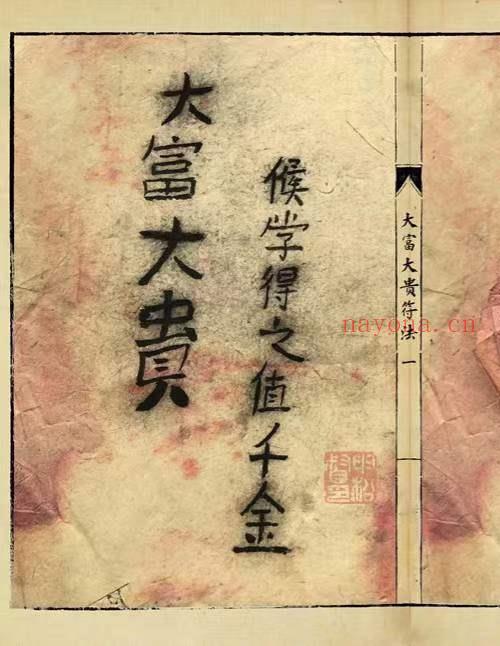 大富大貴符法 一
候学得之值千金
大富大貴
nayona.cn